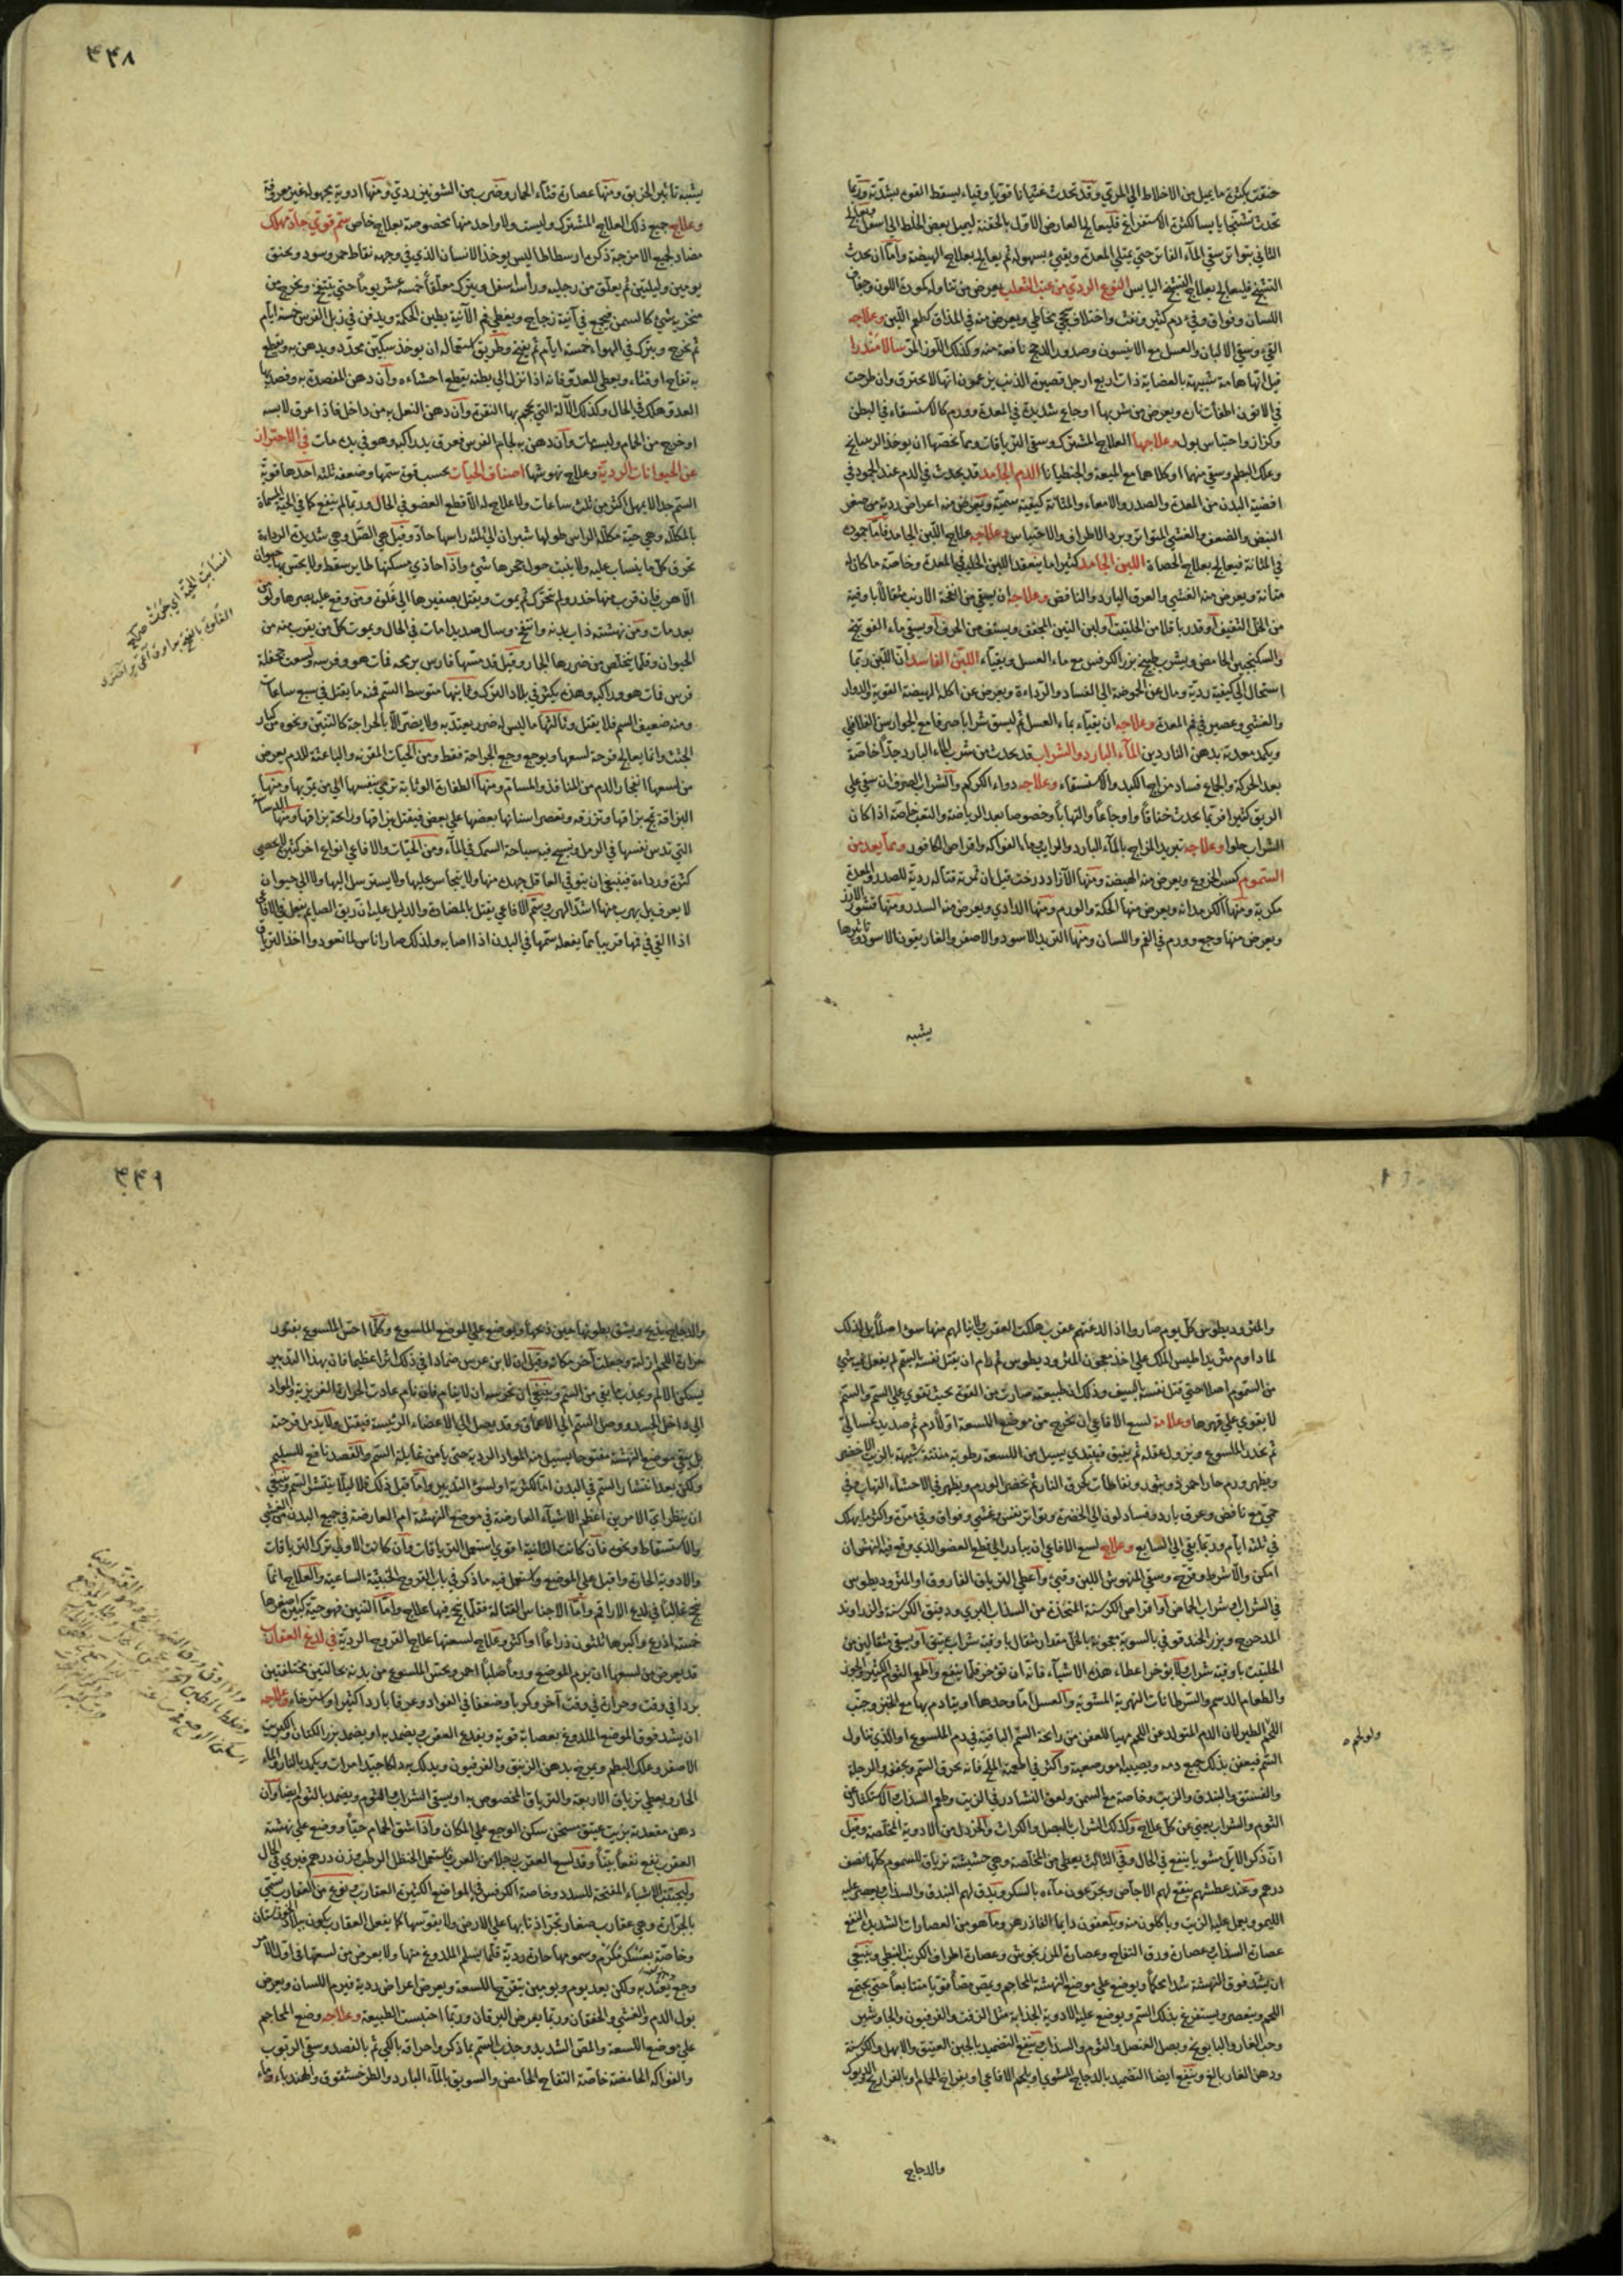 ٤٤٨
خنقت بكثرة ما يميل من الاخلاط الى المري وقد تحدث غثيانا قويا وقياء يسقط القوة بشدّته وربما
تحدث تشنجا يابسا لكثرة الاستفراغ فليعالج العارض الاول بالحقنة ليميل بعض الخلط الى اسفل
الثاني بتواتر سقي الماء الفاتر حتى يمتلي المعدة ويقيئ بسهولة ثم يعالج بعلاج الهيضة واما ان يحدث
التشنج فليعالج بعلاج التشنج اليابس النوع الردي من عنب الثعلب يعرض من تناوله كمودة اللون وجفاف
اللسان وفواق وقيء دم كثير ونفث واختلاف سحجي مخاطي ويعرض منه في المذاق كطعم اللبن وعلاجه
القيء وسقي الالبان والعسل مع الانيسون وصدور الدجاج نافعة منه وكذلك اللوز المر سالامندرا
قيل انها هامة شبيهة بالعضاية ذات اربع ارجل قصيرة الذنب يزعمون انها لا تحترق وان طرحت
في الاتون اطفأت نار ويعرض من شربها اوجاع شديدة في المعدة وورم كالاستسقاء في البطن
وكزاز واحتباس بول وعلاجها العلاج المشترك وسقي الترياقات ومما يخصها ان يوخذ الريتيانج
وعلك البطم وسقي منهما او كلاهما مع الميعة والجنطيانا الدم الجامد قد يحدث في الدم عند الجمود في
افضية البدن من المعدة والصدر والامعاء والمثانة كيفية سمية ويعرض منه اعراض ردية من صغر
النبض والضعف والغشي المتواتر وبرد الاطراف والاحتباس وعلاجه علاج اللبن الجامد فاما جموده
في المثانة فيعالج بعلاج الحصاة اللبن الجامد كثيرا ما ينعقد اللبن الحليب في المعدة وخاصة ما كان له
متانة ويعرض منه الغشي والعرق البارد والنافض وعلاجه ان يسقى من انفحة الارنب مثقالا باوقية
من الخل الثقيف او قدر باقلا من الحلتيت او لبن التين المجفف ويستف من الحرف او يسقى ماء الفوتنج
والسكنجبين الحامض ويشرب طبيخ بزر الكرفس مع ماء العسل ويقياء اللبن الفاسد ان اللبن ربما
استحال الى كيفية ردية ومال عن الحموضة الى الفساد والرداءة ويعرض عن اكله الهيضة القوية والدوار
والغشي وعصير في فم المعدة وعلاجه ان يقياء بماء العسل ثم ليسق شرابا صرفا مع الجوارشن الفلافلي
ويكمد معدته بدهن الناردين الماء البارد والشراب قد يحدث من شرب الماء البارد جدا خاصة
بعد الحركة والجماع فساد مزاج الكبد والاستسقاء وعلاجه دواء الكركم والشراب الصرف ان سقي على
الريق كثيرا فربما يحدث خناقا واوجاعا والتهابا وخصوصا بعد الرياضة والتعب خاصة اذا كان
الشراب حلوا وعلاجه تبريد المزاج بالماء البارد والرايب وماء الفواكه واقراص الكافور ومما يعد من
السموم كسب الخروع ويعرض منه الهيضة ومنها الآزاد درخت قيل ان ثمرته قتالة ردية للصدر والمعدة
مكربة ومنها الكرمدانه ويعرض منها الحكة والورم ومنها الدادي ويعرض منه السدر ومنها قشور الارز
ويعرض منها وجع وورم في الفم واللسان ومنها التربد الاسود والاصفر والغاريقون الاسود وتاثيرها
يشبه
يشبه تاثير الخربق ومنها عصارة قثاء الحمار وضرب من الشونيز ردي ومنها ادوية مجهولة غير معروفة
وعلاج جميع ذلك العلاج المشترك وليست ولا واحد منها مخصوصة بعلاج خاص ستم قوي حاد مهلك
مضاد لجميع الامزجة ذكره ارسطاطاليس يوخذ الانسان الذي في وجهه نقاط حمر وسود ويخنق
يومين وليلتين ثم يعلق من رجليه ورأسه اسفل ويترك معلقا خمسة عشر يوما حتى ينتفخ ويخرج من
منخريه شيء كالسمن فيجمع في آنية زجاج ويغطي فم الآنية بطين الحكمة ويدفن في زبل الفرس خمسة ايام
ثم يخرج ويترك في الهواء خمسة ايام ثم يفتح وطريق استعماله ان يوخذ سكين محدد ويدهن به ويقطع
به تفاح او قثاء ويعطى للعدو فانه اذا نزل الى بطنه يقطع احشاءه وان دهن المفصدة به وفصد بها
العدو هلك في الحال وكذلك الآلة التي يحجم بها النقرة وان دهن النعل به من داخل فاذا عرق لابسه
او خرج من الحمام ولبسه مات وان دهن به لجام الفرس فعرق يد راكبه وهو في يده مات في الاحتراز
عن الحيوانات الردية وعلاج نهوشها اصناف الحيات بحسب قوة ستمها وضعفه ثلثة احدها قوية
السم جدا لا يمهل اكثر من ثلث ساعات ولا علاج له الا قطع العضو في الحال وربما لم ينفع كما في الحية المسماة
بالمكللة وهي حية مكللة الراس طولها شبران الى ثلثة راسها حاد وقيل هي الصل وهي شديدة الرداءة
تحرق كل ما ينساب عليه ولا ينبت حول جحرها شيء واذا حاذي مسكنها طاير سقط ولا يحس بها حيوان
الا هرب فان قرب منها خدر ولم يتحرك ثم يموت ويقتل بصفيرها الى غلوة ومن وقع عليه بصرها ولو من
بعد مات ومن نهشته ذاب بدنه وانتفخ وسال صديدا مات في الحال ويموت كل من يقرب منه من
الحيوان وقلما يتخلص من ضررها الجار وقيل قد مسها فارس برمحه فمات هو وفرسه ولسعت جحفلة
فرس فمات هو وراكبه وهذه يكثر في بلاد الترك وثانيها متوسط السم فمنه ما يقتل في سبع ساعات
ومنه ضعيف السم فلا يقتل وثالثها ما ليس له ضرر يعتد به ولا يضر الا بالجراحة كالتنين ونحوه من كبار
الجثث وانما يعالج قرحة لسعها ويوجع وجع الجراحة فقط ومن الحيات المقرنة والباعثة للدم يعرض
من لسعها انفجار الدم من المنافذ والمسام ومنها الطفارة الوثابة ترمي بنفسها الى من يمر بها ومنها
البزاقة تمج بزاقها وتزرقه وتعصر اسنانها بعضها على بعض فيقتل بزاقها ورائحة بزاقها ومنها الدساسة
التي تدس نفسها في الرمل وتسبح فيه سباحة السمك في الماء ومن الحيات والافاعي انواع اخر كثيرة لا تحصى
كثرة ورداءة فينبغي ان يتوقى العاقل جهده منها ولا يتجاسر عليها ولا يسترسل اليها ولا الى حيوان
لا يعرف بل يهرب منها اشد الهرب وسم الافاعي يقتل بالمضادة والدليل عليه ان ريق الصايم يفعل في الافاعي
اذا القي في فمها قريبا مما يفعله سمها في البدن اذا اصابه ولذلك صار اناس لما تعودوا اخذ الترياق
انساب الحية اي جرت
٤٤٩
والمثروديطوس كل يوم صاروا اذا لدغتهم عقرب هلكت العقرب ولا ينالهم منها سوء اصلا بل لذلك
لما داوم مثريداطيس الملك على اخذ معجون المثروديطوس ثم رام ان يقتل نفسه بالسم لم يفعل فيه شيء
من السموم اصلا حتى قتل نفسه بالسيف وذلك ان طبيعته صارت من القوة بحيث تقوى على السم والسم
لا يقوى على قهرها وعلامة لسع الافاعي ان يخرج من موضع اللسعة اولا دم ثم صديد غسالي
ثم يخدر الملسوع ويزول عقله ثم يفيق فيبتدي يسيل من اللسعة رطوبة منتنة شبيهة بالزيت الاخضر
ويظهر ورم حار احمر ذو بثور ونفاطات كحرق النار ثم يخضر الورم ويظهر في الاحشاء التهاب وفي
حمى مع نافض وعرق بارد وفساد لون الى الخضرة وتواتر نفس وغشي وفواق وقيء مرة واكثر ما يهلك
في ثلثة ايام وربما بقي الى السابع وعلاج لسع الافاعي ان يبادر الى قطع العضو الذي وقع فيه النهش ان
امكن والا شرط وقرح وسقي المنهوش اللبن وقيئ واعطي الترياق الفاروق او المثروديطوس
في الشراب او شراب الحامض او اقراص الكرسنة المتخذة من السذاب البري ودقيق الكرسنة والزراوند
المدحرج وبزر الحندقوقي بالسوية معجونة بالخل مقدار مثقال باوقية شراب عتيق او يسقى مثقالين من
الحلتيت باوقية شراب ولا يؤخر اعطاء هذه الاشياء فانه ان تؤخر قلما ينفع واطعم الثوم الكثير والجوز
والطعام الدسم والسرطانات النهرية المشوية والعسل اما وحدها او يتادم بها مع الخبز وجنب
اللحم الطير لان الدم المتولد عن اللحم مهيأ للعفن من رائحة السم الباقية في دم الملسوع او الذي تناول
السم فيعفن بذلك جميع دمه ويصيبه امور صعبة واكثر في اطعمته الملح فانه يحرق السم ويجففه والرجلة
والفستق والبندق والزبت وخاصة مع السمن ولعق النشادر في الزيت وطعم السذاب والاستكثار من
الثوم والشراب يغني عن كل علاج وكذلك الشراب البصل والكراث والخردل من الادوية المخلصة وقيل
ان ذكر الايل مشويا ينفع في الحال وفي الثالث يعطى من المخلصة وهي حشيشة ترياق للسموم كلها نصف
درهم وعند عطشهم ينقع لهم الاجاص ويجرعون ماءه بالسكر ويدق لهم البندق والسذاب ويعصر عليه
الليمو ويجعل عليه الزيت وياكلون منه ويلعقون دايما الفادزهر وماهو من العصارات الشديدة النفع
عصارة السذاب وعصارة ورق التفاح وعصارة المرزنجوش وعصارة اطراف الكرنب النبطي وينبغي
ان يشد فوق النهشة شدا محكما ويوضع على موضع النهشة المحاجم ويمص مصا قويا متتابعا حتى يجتمع
اللحم ويتعصر ويستفرغ بذلك السم ويوضع عليه الادوية الجذابة مثل الزفت والفرفيون والجاوشير
وحب الغار والبابونج وبصل العنصل والثوم والسذاب وينفع التضميد بالجبن العتيق والابهل والكرسنة
ودهن الغار بالغ وينفع ايضا التضميد بالدجاج المشوي او بلحم الافاعي او بفراخ الحمام او بالفراريج والديوك
والدجاج
والدجاج يذبح ويشق بطونها حين ذبحها ويوضع على الموضع الملسوع وكلما احس الملسوع بفتور
حرارة اللحم ازلته وجعلت آخر مكانه وقيل ان لابن عرس ضمادا في ذلك اثرا عظيما فان بهذا التدبير
يسكن الالم ويجذب ما بقي من السم وينبغي ان تحرسه ان لا ينام فان نام عادت الحرارة الغريزية والمواد
الى داخل الجسد ووصل السم الى الاعماق وقد يصل الى الاعضاء الرئيسة فيقتل ولا يدمل قرحته
بل يبقى موضع النهشة مفتوحا يسيل منه المواد الردية حتى يامن غايلة السم والفصد نافع للسليم
ولكن بعد انتشار السم في البدن اما لكثرته او لسوء التدبير واما قبل ذلك فلا لئلا ينتشر السم وينبغي
ان ينظر اي الامرين اعظم الاشياء العارضة في موضع النهشة ام العارضة في جميع البدن من الغشي
والاستسقاط ونحوه فان كانت الثانية اقوى استعمل الترياقات وان كانت الاولى ترك الترياقات
والادوية الحارة واقبل على الموضع واستعمل فيه ما ذكر في باب القروح الخبيثة الساعية والعلاج انما
ينجح غالبا في لدغ الاراقم واما الاجناس القتالة فقلما ينجح فيها علاج واما التنين فهو حية كبيرة اصغرها
خمسة اذرع واكبرها ثلثون ذراعا او اكثر وعلاج لسعتها علاج القروح الردية في لدغ العقارب
قد يعرض من لسعها ان يرم الموضع ورما صلبا احمر ويحس الملسوع من بدنه بحالتين مختلفتين
بردا في وقت وحرارة في وقت آخر وكربا وضعفا في الفواد وعرقا باردا كثيرا واسترخاء وعلاجه
ان يشد فوق الموضع الملدوغ بعصابة قوية ويفدغ العقرب ويضمد به او يضمد بزر الكتان والكبريت
الاصفر وعلك البطم ويمرخ بدهن الزنبق والفرفيون ويدلك به دلكا جيدا مرات ويكمد بالنار والماء
الحار ويعطى ترياق الاربعة والترياق المخصوص به او يسقى الشراب والثوم ويضمد بالثوم ايضا وان
دهن مقعدته بزيت عتيق مسخن سكن الوجع على المكان واذا شق الحمام حيا ووضع على نهشة
العقرب نفع نفعا بينا وقد لسع العقرب رجلا من العرب فاستعمل الحنظل الرطب وزن درهم فبرئ في الحال
وليجتنب الاشياء المفتحة للسدد وخاصة الكرفس في المواضع الكثيرة العقارب ونوع من العقارب يسمى
بالجرارة وهي عقارب صغار تجر اذنابها على الارض ولا يقوسها كما يفعل العقارب يكون ببلاد خوزستان
وخاصة بعسكر مكرم وسمومها حارة ردية قلما يسلم الملدوغ منها ولا يعرض من لسعتها في اول الامر
وجع يعتد به ولكن بعد يوم ويومين يتقرح اللسعة ويعرض اعراض ردية فيرم اللسان ويعرض
بول الدم والغشي والخفقان وربما يعرض اليرقان وربما احتبست الطبيعة وعلاجه وضع المحاجم
على موضع اللسعة والمص الشديد وجذب السم بما ذكر واحراقه بالكي ثم بالفصد وسقي الربوب
والفواكه الحامضة خاصة التفاح الحامض والسويق بالماء البارد والطرخشقوق والهندباء وماء